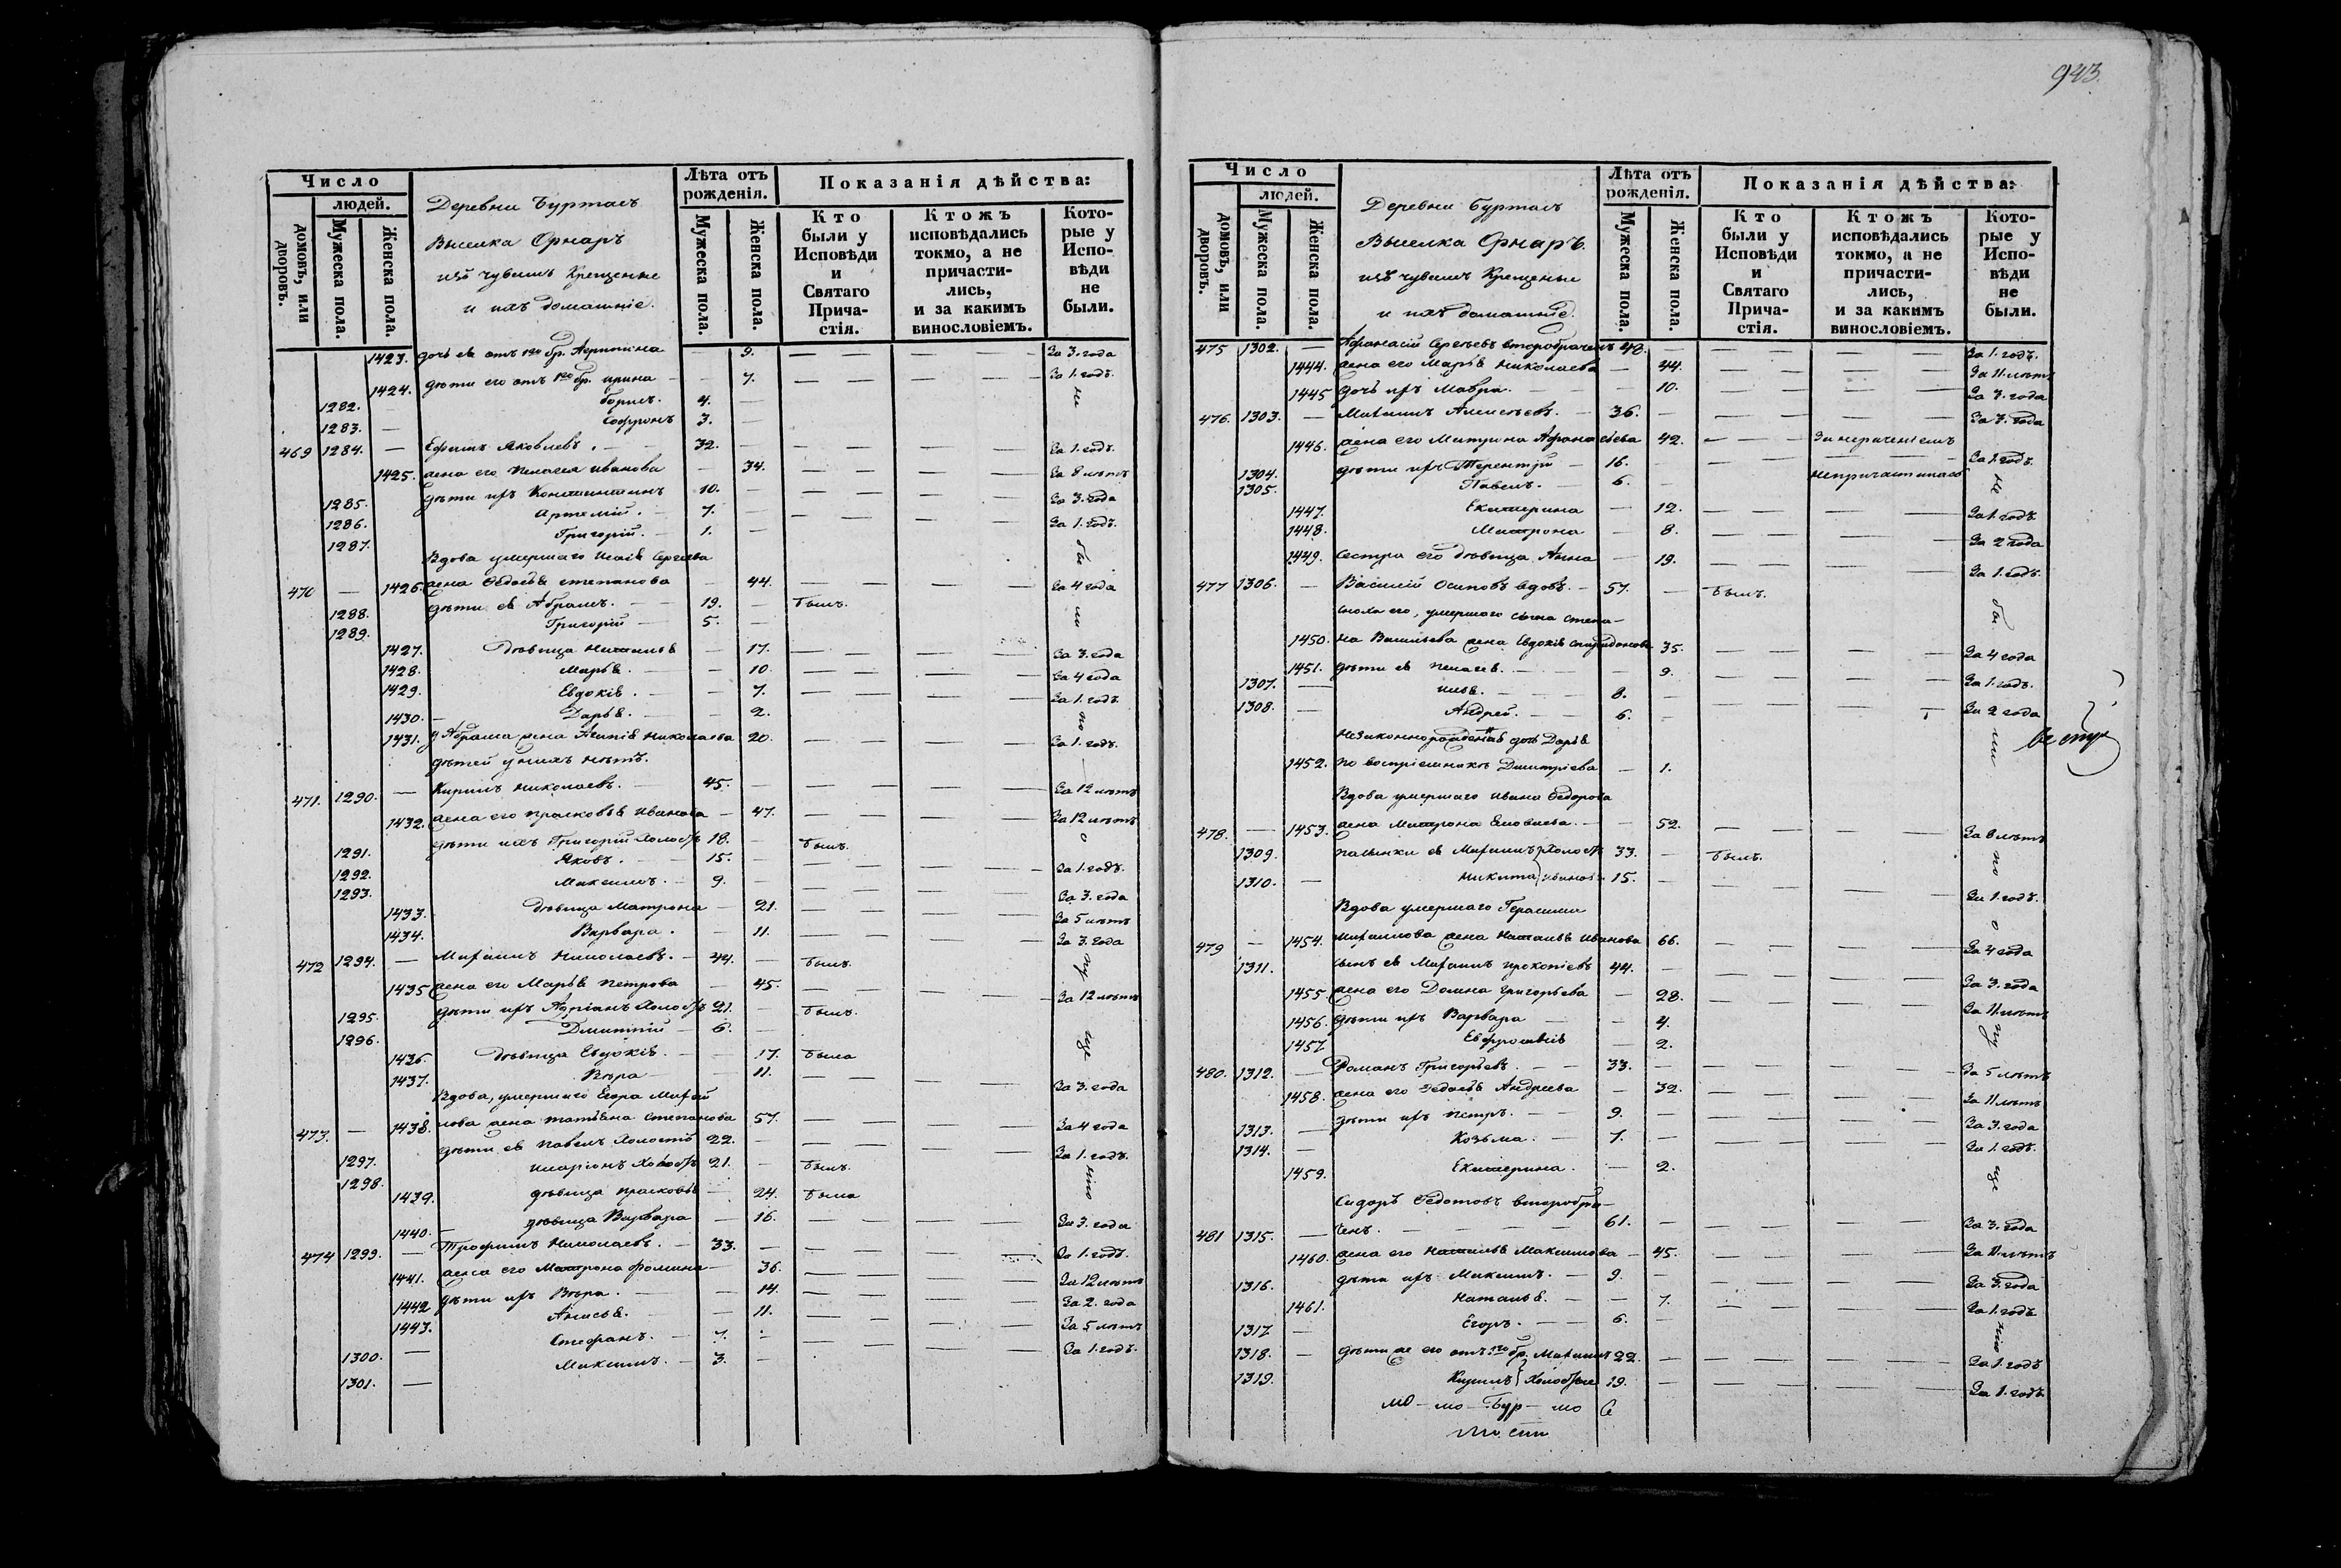 943.
Число
людей.
домовъ, или дворовъ.
Мужеска пола.
Женска пола.
Деревни Буртасъ
Выселка Орнаръ
изъ чувашъ Крещеные
и ихъ домашніе.
Лѣта отъ рожденія.
Мужеска пола.
Женска пола.
Показанія дѣйства:
Кто были у Исповѣди и Святаго Причастія.
Ктожъ исповѣдались токмо, а не причастились, и за какимъ винословіемъ.
Которые у Исповѣди не были.
1423. дочь ея отъ 1го бр. 9. За 3. года
1424. дѣти его отъ 1го бр. Ирина 7. За 1. годъ.
1282. Борисъ. 4.
1283. Софронъ 3.
469 1284. Ефимъ Яковлевъ. 32. За 1. годъ.
1425. жена его Пелагея Иванова 34. За 8 лѣтъ
1285. дѣти ихъ Константинъ 10. За 3. года
1286. Артемій. 7. За 1. годъ.
1287. Григорій. 1.
Вдова умершаго Сергѣева
470 1426. жена Ѳедосья Степанова 44. За 4 года
1288. дѣти ея Абрамъ. 19. былъ.
1289. Григорій 5.
1427. дѣвица Наталья 17. За 3. года
1428. Марья. 10. За 4 года
1429. Евдокія. 7. За 1. годъ
1430. Дарья. 2.
1431. у Абрама жена Николаева 20. За 1. годъ.
дѣтей у нихъ нѣтъ.
471. 1290. Кирилъ Николаевъ. 45. За 12 лѣтъ
1432. жена его Прасковья Иванова 47. За 12 лѣтъ
1291. дѣти ихъ Григорій Холостъ 18. былъ.
1292. Яковъ. 15. За 1. годъ.
1293. Максимъ. 9. За 3. года
1433. дѣвица Матрона 21. За 5 лѣтъ
1434. Варвара. 11. За 3. года
472 1294. Михаилъ Николаевъ. 44. былъ.
1435 жена его Марья Петрова 45. За 12 лѣтъ
1295. дѣти ихъ Адріанъ Холостъ 21. былъ.
1296. Дмитрій 6.
1436. дѣвица Евдокія. 17. была
1437. Вѣра 11. За 3. года
Вдова, умершаго Егора Михай
473. 1438. лова жена Татьяна Степанова 57. За 4 года
1297. дѣти ея Павелъ Холостъ 22. За 1. годъ.
1298. Иларіонъ Холостъ 21. былъ.
1439. дѣвица Прасковья 24. была
1440. дѣвица Варвара 16. За 3. года
474 1299. Трофимъ Николаевъ. 33. За 1. годъ.
1441. жена его Матрона Фомина 36. За 12 лѣтъ
1442 дѣти ихъ Вѣра. 14. За 2. года
1443. Анисья. 11. За 5 лѣтъ
1300. Стефанъ. 7. За 1. годъ.
1301. Максимъ. 3.
не бы ли по о ну ще нію
Число
людей.
домовъ, или дворовъ.
Мужеска пола.
Женска пола.
Деревни Буртасъ
Выселка Орнаръ.
изъ чувашъ Крещеные
и ихъ домашніе.
Лѣта отъ рожденія.
Мужеска пола.
Женска пола.
Показанія дѣйства:
Кто были у Исповѣди и Святаго Причастія.
Ктожъ исповѣдались токмо, а не причастились, и за какимъ винословіемъ.
Которые у Исповѣди не были.
475 1302. Афанасій Сергѣевъ второбраченъ 48. За 1. годъ.
1444. жена его Марья Николаева 44. За 11. лѣтъ
1445 дочь ихъ Мавра. 10. За 3. года
476. 1303. Михаилъ Алексѣевъ. 36. За 3. года
1446. жена его Матрона Афанасьева 42. За нераченіемъ
1304. дѣти ихъ Терентій 16. За 1. годъ.
1305. Павелъ. 6. непричастилась
1447. Екатерина 12. За 1. годъ
1448. Матрона 8. За 2 года
1449. сестра его дѣвица Анна 19. За 1. годъ.
477 1306. Василій Осиповъ вдовъ. 57. былъ.
сноха его, умершаго сына Степа-
1450. на Васильева жена Евдокія Спиридонова 35. За 4 года
1451. дѣти ея Пелагея. 9. За 1. годъ.
1307. Илья. 8. За 2 года
1308. Андрей. 6.
незаконнорожденная дочь Дарья
1452. по воспріемникѣ Дмитріева 1.
Вдова умершаго Ивана Ѳедорова
478. 1453. жена Матрона 52. За 8 лѣтъ
1309. пасынки ея Михаилъ Холостъ 33. былъ.
1310. Никита Ивановы 15. За 1. годъ.
Вдова умершаго Герасима
479 1454. Михайлова жена Наталья Иванова 66. За 4 года
1311. сынъ ея Михаилъ Прокопіевъ 44. За 3. года
1455. жена его Домна Григорьева 28. За 11. лѣтъ
1456. дѣти ихъ Варвара 4.
1457 Евфросинія 2.
480. 1312. Романъ Григорьевъ. 33. За 5 лѣтъ
1458. жена его Ѳедосья Андреева 32. За 11 лѣтъ
1313. дѣти ихъ Петръ. 9. За 3. года
1314. Козьма. 7. За 1. годъ.
1459. Екатерина. 2.
Сидоръ Ѳедотовъ второбра-
481 1315. ченъ. 61. За 3. года
1460. жена его Наталья Максимова 45. За 11. лѣтъ
1316. дѣти ихъ Максимъ. 9. За 3. года
1461. Наталья. 7. За 1. годъ
1317 Егоръ. 6.
1318. дѣти же его отъ 1го бр. Михаилъ 22. За 1. годъ
1319. Кирилъ Холостые 19. За 1. годъ.
не бы ли по о ну ще нію